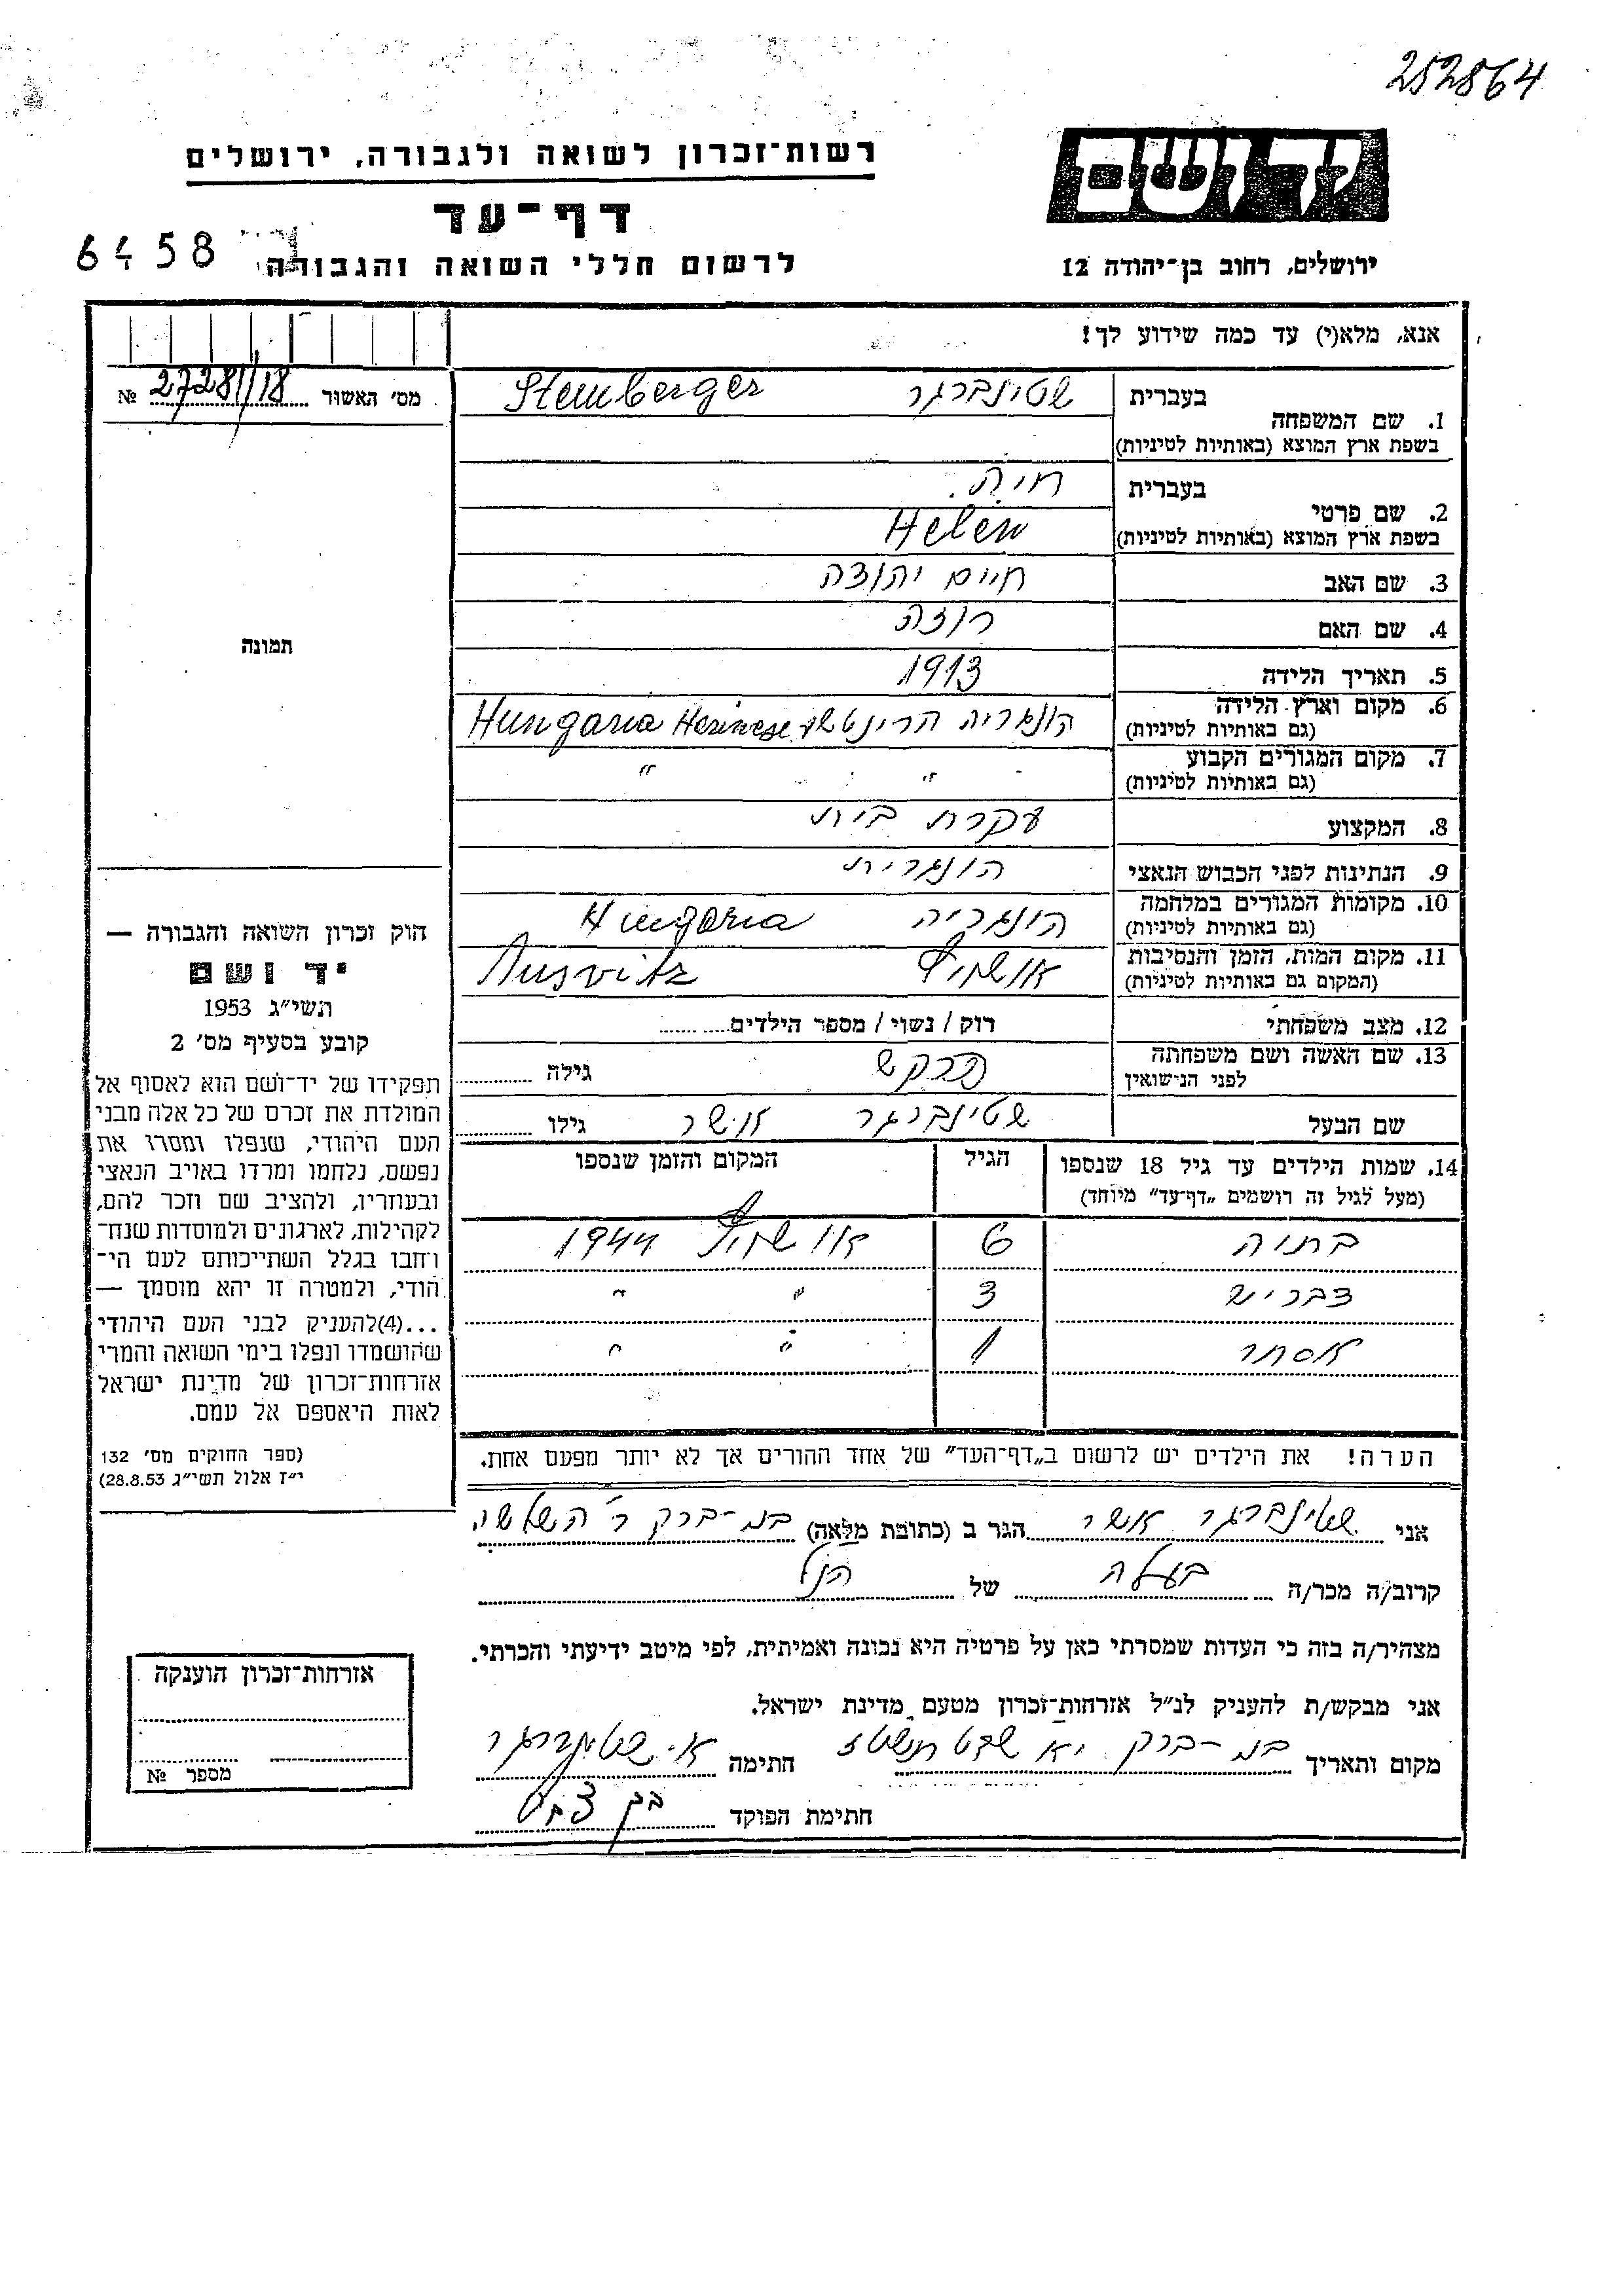 252864
רשות־זכרון לשואה ולגבורה, ירושלים
יד ושם
דף־עד
6458
לרשום חללי השואה והגבורה
ירושלים, רחוב בן־יהודה 12
אנא, מלא(י) עד כמה שידוע לך!
מס' האשור № 27281/18
1. שם המשפחה
בעברית שטינברגר Steinberger
בשפת ארץ המוצא (באותיות לטיניות)
2. שם פרטי
בעברית חיה
בשפת ארץ המוצא (באותיות לטיניות) Helen
3. שם האב חיים יהודה
4. שם האם רוזה
תמונה
5. תאריך הלידה 1913
6. מקום וארץ הלידה הונגריה Hungaria
(גם באותיות לטיניות)
7. מקום המגורים הקבוע " "
(גם באותיות לטיניות)
8. המקצוע עקרת בית
9. הנתינות לפני הכבוש הנאצי הונגרית
10. מקומות המגורים במלחמה הונגריה Hungaria
(גם באותיות לטיניות)
11. מקום המות, הזמן והנסיבות אושויץ Ausvitz
(המקום גם באותיות לטיניות)
12. מצב משפחתי רוק / נשוי / מספר הילדים
13. שם האשה ושם משפחתה לפני הנישואין גילה
שם הבעל שטינברגר אשר גילו
14. שמות הילדים עד גיל 18 שנספו הגיל המקום והזמן שנספו
(מעל לגיל זה רושמים „דף־עד" מיוחד)
6 אושויץ 1944
3 " "
אסתר 1 " "
הערה! את הילדים יש לרשום ב„דף־העד" של אחד ההורים אך לא יותר מפעם אחת.
חוק זכרון השואה והגבורה —
יד ושם
תשי"ג 1953
קובע בסעיף מס' 2
תפקידו של יד־ושם הוא לאסוף אל
המולדת את זכרם של כל אלה מבני
העם היהודי, שנפלו ומסרו את
נפשם, נלחמו ומרדו באויב הנאצי
ובעוזריו, ולהציב שם וזכר להם,
לקהילות, לארגונים ולמוסדות שנח־
רחבו בגלל השתייכותם לעם הי־
הודי, ולמטרה זו יהא מוסמך —
...(4)להעניק לבני העם היהודי
שהושמדו ונפלו בימי השואה והמרי
אזרחות־זכרון של מדינת ישראל
לאות היאספם אל עמם.
(ספר החוקים מס' 132
י"ז אלול תשי"ג 28.8.53)
אני שטינברגר אשר הגר ב (כתובת מלאה) בני-ברק ר' השלשה
קרוב/ה מכר/ה בעלה של הנ"ל
מצהיר/ה בזה כי העדות שמסרתי כאן על פרטיה היא נכונה ואמיתית, לפי מיטב ידיעתי והכרתי.
אני מבקש/ת להעניק לנ"ל אזרחות־זכרון מטעם מדינת ישראל.
מקום ותאריך בני-ברק יא שבט תשטז חתימה א. שטינברגר
חתימת הפוקד
אזרחות־זכרון הוענקה
מספר №